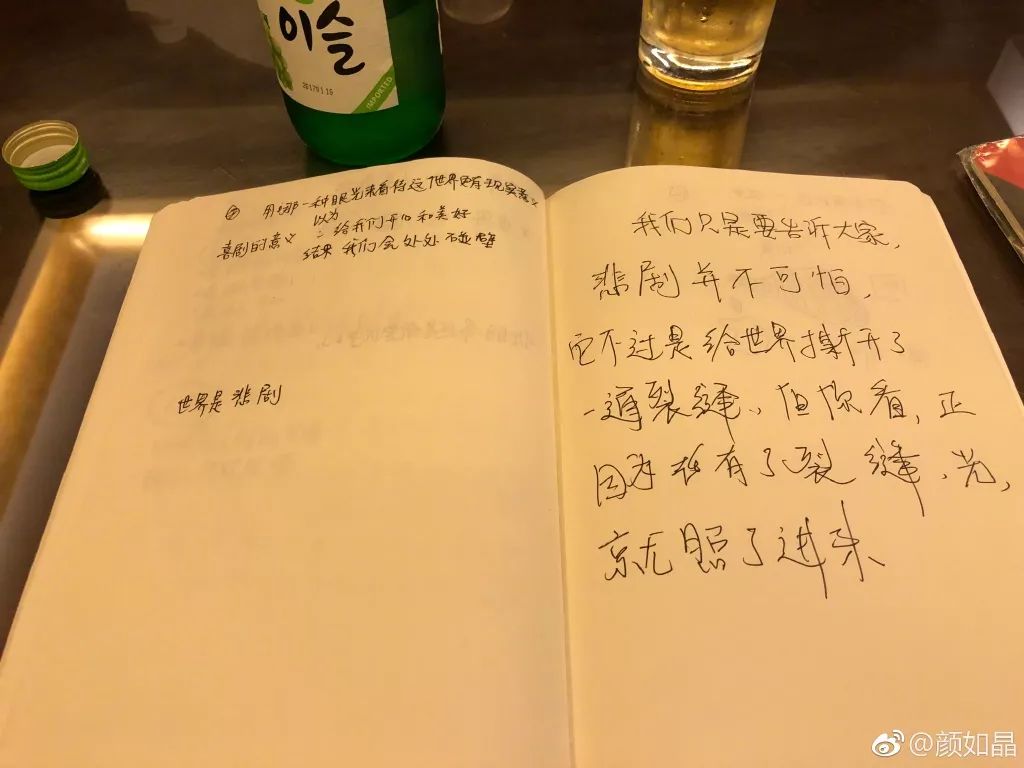 이슬
2017.01.16
IMPORTED
用哪一种眼光来看待这世界更有现实意义
喜剧的意义
以为
给我们开心和美好
结果 我们会处处不碰壁
世界是悲剧
我们只是要告诉大家，
悲剧并不可怕，
它不过是给世界撕开了
一道裂缝、但你看，正
因为在有了裂缝，光，
就照了进来
@颜如晶